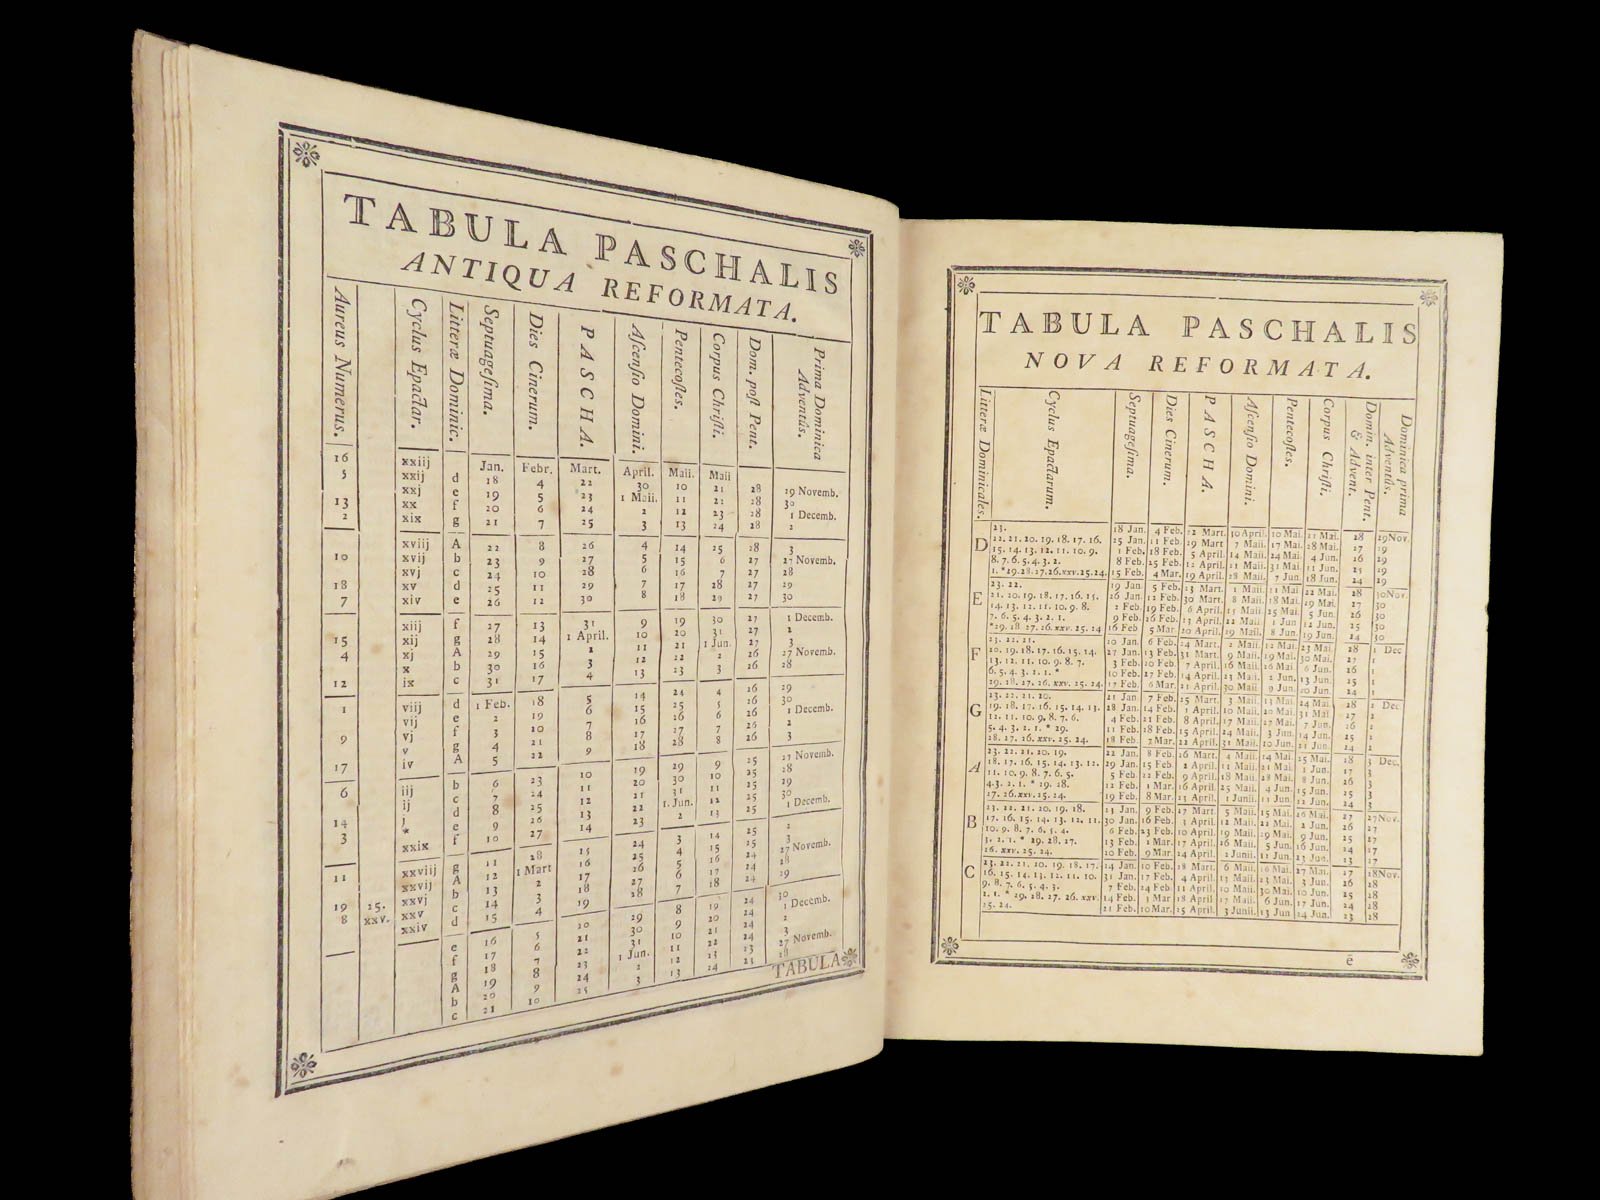 TABULA PASCHALIS
ANTIQUA REFORMATA.
Aureus Numerus. Cyclus Epactar. Litteræ Dominic. Septuagesima. Dies Cinerum. PASCHA. Ascensio Domini. Pentecostes. Corpus Christi. Dom. post Pent. Prima Dominica Adventûs.
Jan. Febr. Mart. April. Maii. Maii
16 xxiij d 18 4 22 30 10 21 28 29 Novemb.
5 xxij e 19 5 23 1 Maii. 11 22 28 30
xxj f 20 6 24 2 12 23 28 1 Decemb.
13 xx g 21 7 25 3 13 24 28 2
2 xix A 22 8 26 4 14 25 28 3
xviij b 23 9 27 5 15 26 27 27 Novemb.
10 xvij c 24 10 28 6 16 27 27 28
xvj d 25 11 29 7 17 28 27 29
18 xv e 26 12 30 8 18 29 27 30
7 xiv f 27 13 31 9 19 30 27 1 Decemb.
xiij g 28 14 1 April. 10 20 31 27 2
15 xij A 29 15 2 11 21 1 Jun. 27 3
4 xj b 30 16 3 12 22 2 26 27 Novemb.
x c 31 17 4 13 23 3 26 28
12 ix d 1 Feb. 18 5 14 24 4 26 29
1 viij e 2 19 6 15 25 5 26 30
vij f 3 20 7 16 26 6 26 1 Decemb.
9 vj g 4 21 8 17 27 7 26 2
v A 5 22 9 18 28 8 26 3
17 iv b 6 23 10 19 29 9 25 27 Novemb.
6 iij c 7 24 11 20 30 10 25 28
ij d 8 25 12 21 31 11 25 29
14 j e 9 26 13 22 1 Jun. 12 25 30
3 * f 10 27 14 23 2 13 25 1 Decemb.
xxix g 11 28 15 24 3 14 25 2
11 xxviij A 12 1 Mart 16 25 4 15 25 3
xxvij b 13 2 17 26 5 16 24 27 Novemb.
19 25. xxvj c 14 3 18 27 6 17 24 28
8 xxv. xxv d 15 4 19 28 7 18 24 29
xxiv e 16 5 20 29 8 19 24 30
f 17 6 21 30 9 20 24 1 Decemb.
g 18 7 22 31 10 21 24 2
A 19 8 23 1 Jun. 11 22 24 3
b 20 9 24 2 12 23 23 27 Novemb.
c 21 10 25 3 13 24 23 28
TABULA
TABULA PASCHALIS
NOVA REFORMATA.
Litteræ Dominicales. Cyclus Epactarum. Septuagesima. Dies Cinerum. PASCHA. Ascensio Domini. Pentecostes. Corpus Christi. Domin. inter Pent. & Advent. Dominica prima Adventûs.
D 23. 18 Jan. 4 Feb. 22 Mart. 30 April. 10 Mai. 21 Mai. 28 29 Nov.
22. 21. 20. 19. 18. 17. 16. 25 Jan. 11 Feb. 29 Mart 7 Maii. 17 Mai. 28 Mai. 27 29
15. 14. 13. 12. 11. 10. 9. 1 Feb. 18 Feb. 5 April. 14 Maii. 24 Mai. 4 Jun. 26 29
8. 7. 6. 5. 4. 3. 2. 8 Feb. 25 Feb. 12 April. 21 Maii. 31 Mai. 11 Jun. 25 29
1. * 29. 28. 27. 26. xxv. 25. 24. 15 Feb. 4 Mar. 19 April. 28 Maii. 7 Jun. 18 Jun. 24 29
E 23. 22. 19 Jan. 5 Feb. 23 Mart. 1 Maii. 11 Mai 22 Mai. 28 30 Nov.
21. 20. 19. 18. 17. 16. 15. 26 Jan. 12 Feb. 30 Mart. 8 Maii. 18 Mai. 29 Mai. 27 30
14. 13. 12. 11. 10. 9. 8. 2 Feb. 19 Feb. 6 April. 15 Maii. 25 Mai. 5 Jun. 26 30
7. 6. 5. 4. 3. 2. 1. 9 Feb. 26 Feb. 13 April. 22 Maii. 1 Jun 12 Jun. 25 30
* 29. 28. 27. 26. xxv. 25. 24 16 Feb 5 Mar. 20 April. 29 Maii. 8 Jun. 19 Jun. 24 30
F 23. 22. 21. 20 Jan. 6 Feb. 24 Mart. 2 Maii. 12 Mai. 23 Mai. 28 1 Dec
20. 19. 18. 17. 16. 15. 14. 27 Jan. 13 Feb. 31 Mart. 9 Maii. 19 Mai. 30 Mai. 27 1
13. 12. 11. 10. 9. 8. 7. 3 Feb. 20 Feb. 7 April. 16 Maii. 26 Mai. 6 Jun. 26 1
6. 5. 4. 3. 2. 1. * 10 Feb. 27 Feb. 14 April. 23 Maii. 2 Jun. 13 Jun. 25 1
29. 28. 27. 26. xxv. 25. 24. 17 Feb. 6 Mar. 21 April. 30 Maii. 9 Jun. 20 Jun. 24 1
G 23. 22. 21. 20. 21 Jan. 7 Feb. 25 Mart. 3 Maii. 13 Mai. 24 Mai. 28 2 Dec
19. 18. 17. 16. 15. 14. 13. 28 Jan. 14 Feb. 1 April. 10 Maii. 20 Mai. 31 Mai. 27 2
12. 11. 10. 9. 8. 7. 6. 4 Feb. 21 Feb. 8 April. 17 Maii. 27 Mai. 7 Jun. 26 2
5. 4. 3. 2. 1. * 29. 11 Feb. 28 Feb. 15 April. 24 Maii. 3 Jun. 14 Jun. 25 2
28. 27. 26. xxv. 25. 24. 18 Feb. 7 Mar. 22 April. 31 Maii. 10 Jun. 21 Jun. 24 2
A 23. 22. 21. 20. 19. 22 Jan. 8 Feb. 26 Mart. 4 Maii. 14 Mai. 25 Mai. 28 3 Dec.
18. 17. 16. 15. 14. 13. 12. 29 Jan. 15 Feb. 2 April. 11 Maii. 21 Mai. 1 Jun. 27 3
11. 10. 9. 8. 7. 6. 5. 5 Feb. 22 Feb. 9 April. 18 Maii. 28 Mai. 8 Jun. 26 3
4. 3. 2. 1. * 29. 28. 12 Feb. 1 Mar. 16 April. 25 Maii. 4 Jun. 15 Jun. 25 3
27. 26. xxv. 25. 24. 19 Feb. 8 Mar. 23 April. 1 Junii. 11 Jun. 22 Jun. 24 3
B 23. 22. 21. 20. 19. 18. 23 Jan. 9 Feb. 27 Mart. 5 Maii. 15 Mai. 26 Mai. 27 27 Nov.
17. 16. 15. 14. 13. 12. 11. 30 Jan. 16 Feb. 3 April. 12 Maii. 22 Mai. 2 Jun. 26 27
10. 9. 8. 7. 6. 5. 4. 6 Feb. 23 Feb. 10 April. 19 Maii. 29 Mai. 9 Jun. 25 27
3. 2. 1. * 29. 28. 27. 13 Feb. 2 Mar. 17 April. 26 Maii. 5 Jun. 16 Jun. 24 27
26. xxv. 25. 24. 20 Feb. 9 Mar. 24 April. 2 Junii. 12 Jun. 23 Jun. 23 27
C 23. 22. 21. 20. 19. 18. 17. 24 Jan. 10 Feb. 28 Mart. 6 Maii. 16 Mai. 27 Mai. 27 28 Nov.
16. 15. 14. 13. 12. 11. 10. 31 Jan. 17 Feb. 4 April. 13 Maii. 23 Mai. 3 Jun. 26 28
9. 8. 7. 6. 5. 4. 3. 7 Feb. 24 Feb. 11 April. 20 Maii. 30 Mai. 10 Jun. 25 28
2. 1. * 29. 28. 27. 26. xxv. 14 Feb. 3 Mar 18 April. 27 Maii. 6 Jun. 17 Jun. 24 28
25. 24. 21 Feb. 10 Mar. 25 April. 3 Junii. 13 Jun 24 Jun. 23 28
ē